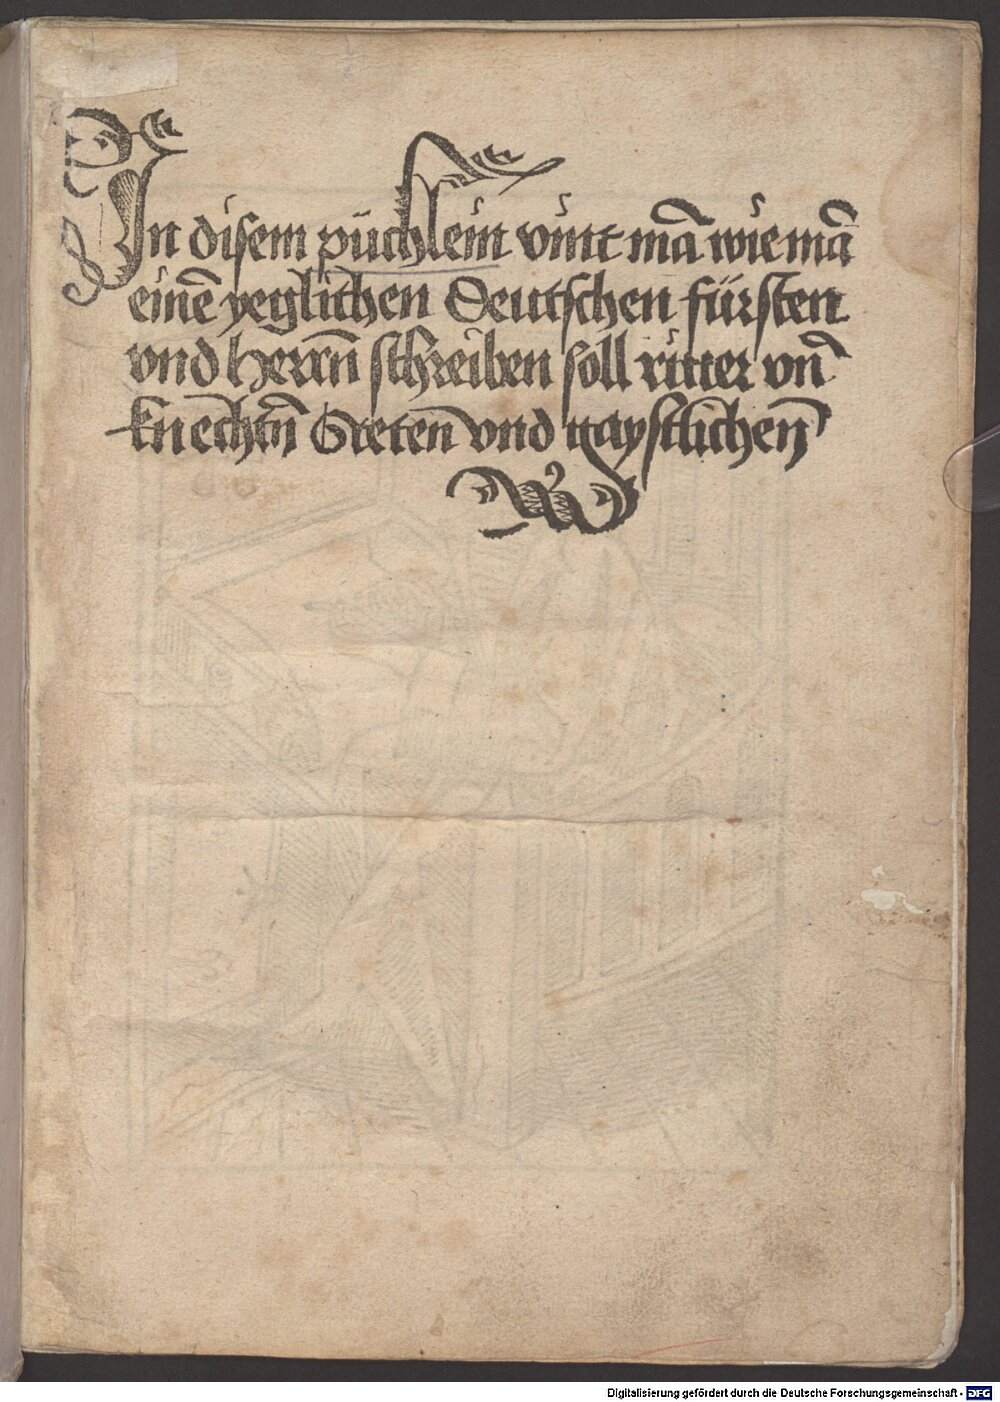 In disem püchlein vint mā wie mā
einē yeglichen Deutschen fürsten
vnd herrn̄ schreiben soll ritter vn̄
knechtn̄ Steten vnd gaystlichen
Digitalisierung gefördert durch die Deutsche Forschungsgemeinschaft - DFG